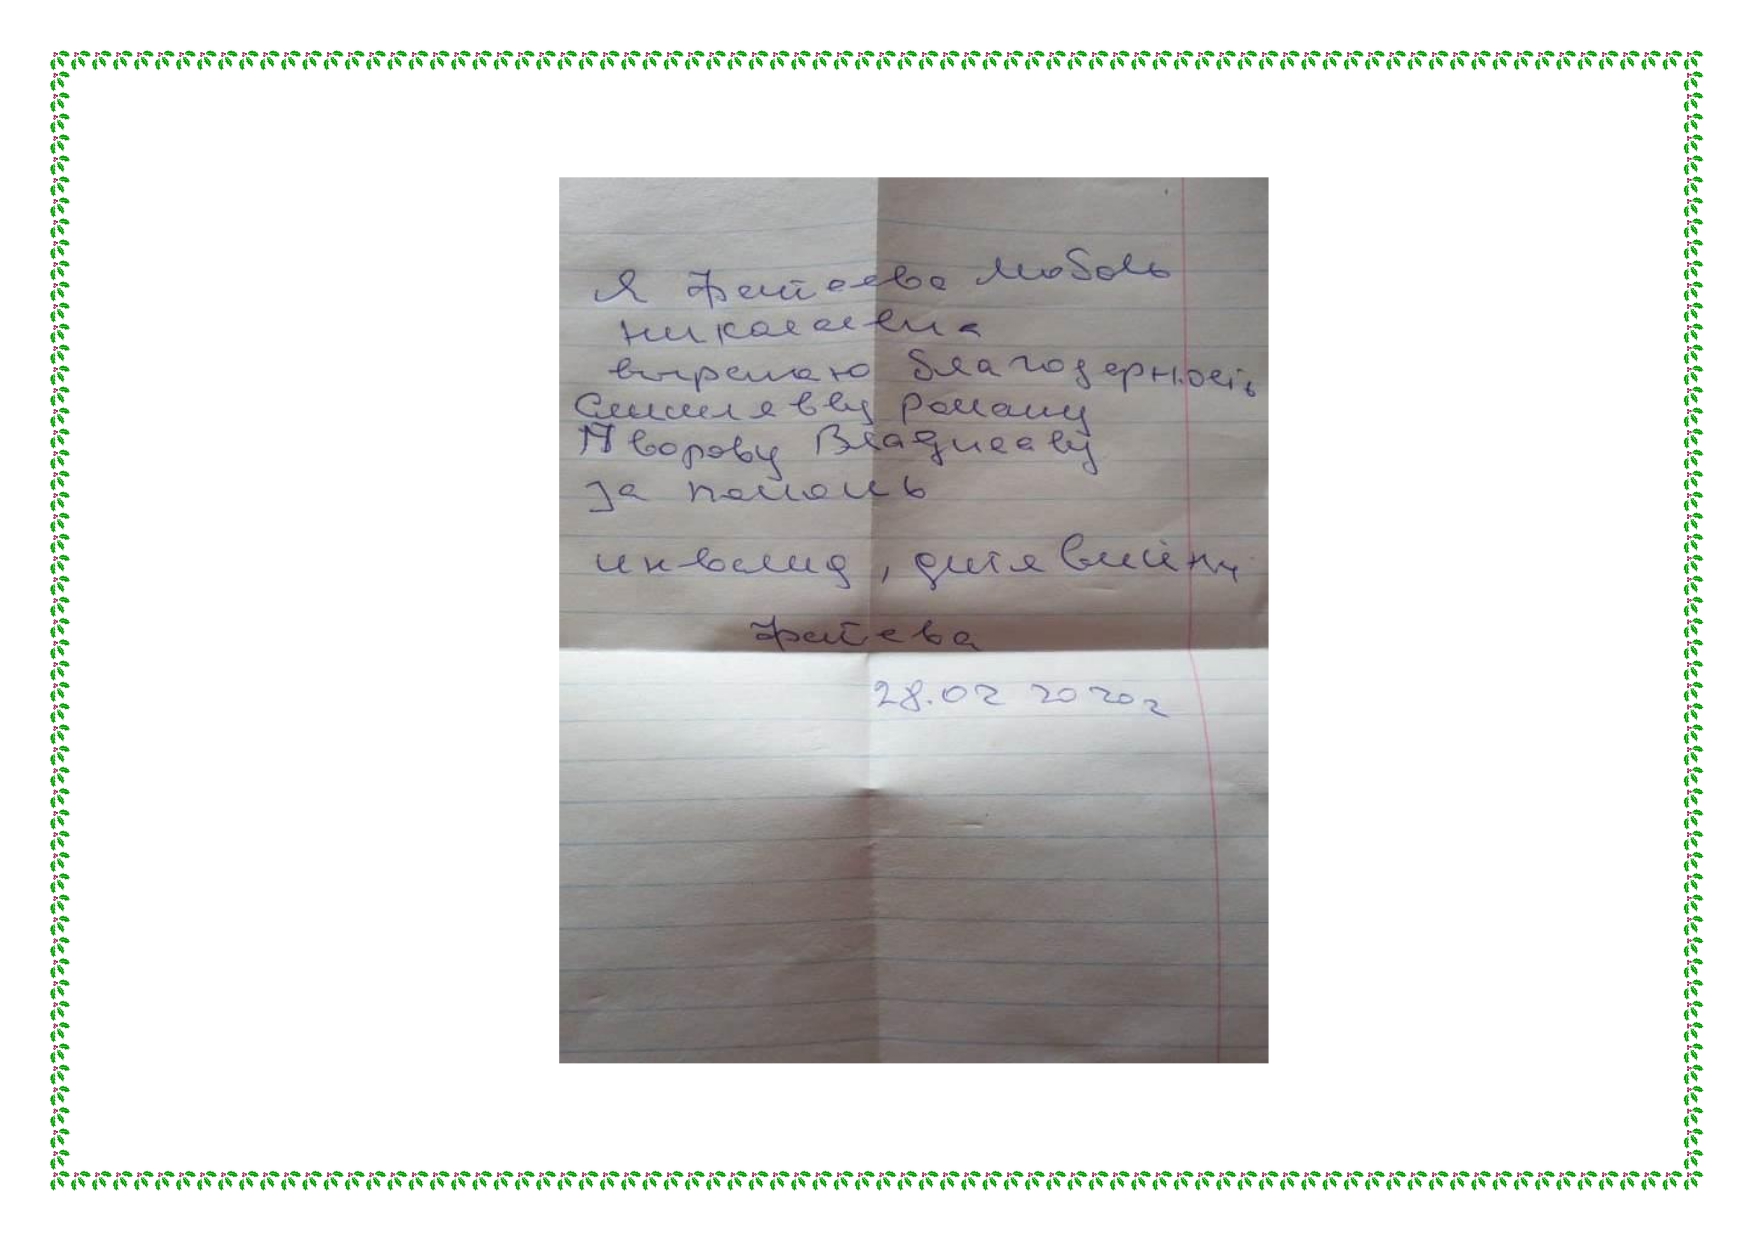 Я Фатеева Любовь
Николаевна
выражаю благодарность
Роману
Владиславу
за помощь
инвалид, дитя войны
Фатева
28.02 2020г